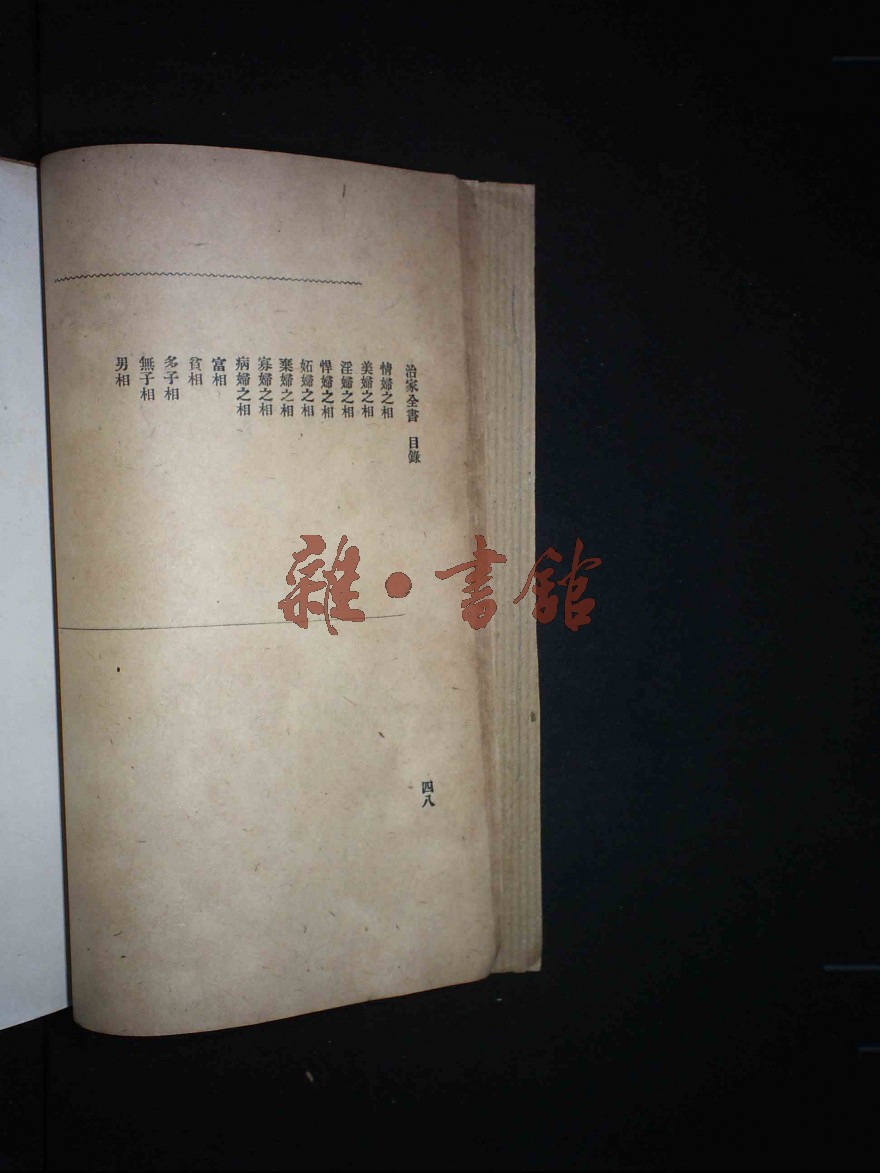 治家全書　目錄
情婦之相
美婦之相
淫婦之相
悍婦之相
妬婦之相
棄婦之相
寡婦之相
病婦之相
富相
貧相
多子相
無子相
男相
四八
雜·書館